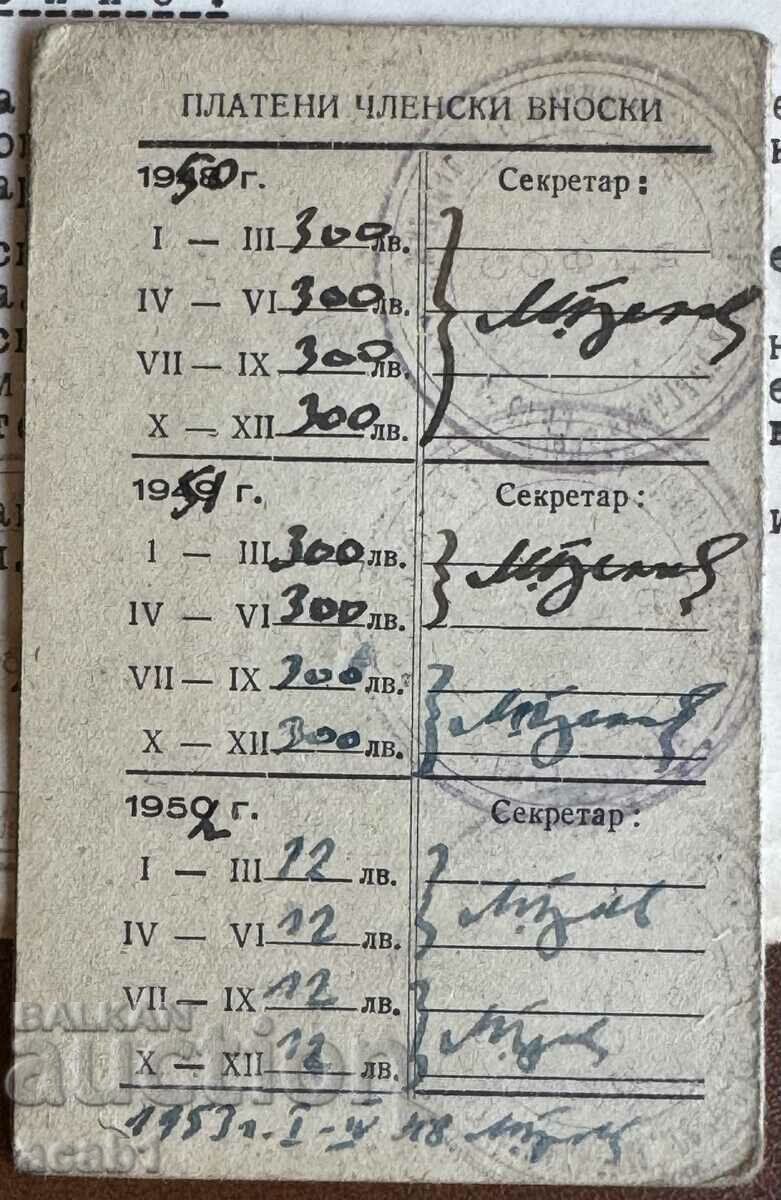 ПЛАТЕНИ ЧЛЕНСКИ ВНОСКИ
1950 г. Секретар:
I — III 300 лв.
IV — VI 300 лв.
VII — IX 300 лв.
X — XII 300 лв.
1951 г. Секретар:
1 — III 300 лв.
IV — VI 300 лв.
VII — IX 300 лв.
X — XII 300 лв.
1952 г. Секретар:
I — III 12 лв.
IV — VI 12 лв.
VII — IX 12 лв.
X — XII 12 лв.
1953 г. I-IV 48
BALKAN
auction
acab1